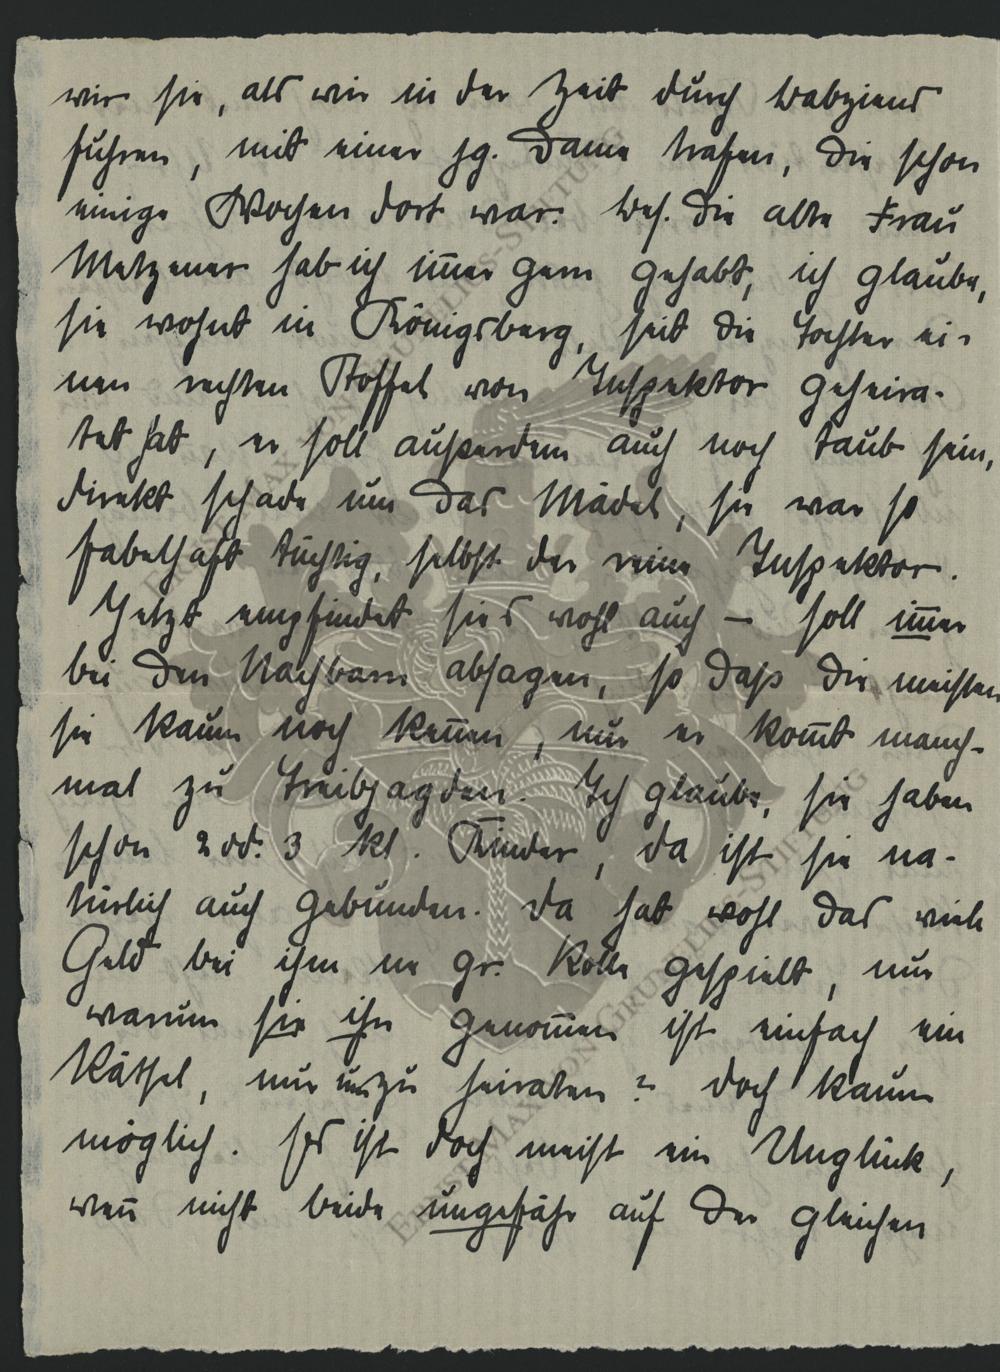 wir sie, als wir in der Zeit durch Babziens
fuhren, mit einer jg. Dame trafen, die schon
einige Wochen dort war. Bes. die alte Frau
Metzener hab ich im̄er gern gehabt, ich glaube,
sie wohnt in Königsberg, seit die Tochter ei-
nen rechten Stoffel von Inspektor geheira-
tet hat, er soll außerdem auch noch taub sein,
direkt schade um das Mädel, sie war so
fabelhaft tüchtig, selbst der reine Inspektor.
Jetzt empfindet sie's wohl auch – soll im̄er
bei den Nachbarn absagen, so daß die meisten
sie kaum noch ken̄en, nur er kom̄t manch-
mal zu Treibjagden. Ich glaube, sie haben
schon 2 od. 3 kl. Kinder, da ist sie na-
türlich auch gebunden. Da hat wohl das viele
Geld bei ihm ne gr. Rolle gespielt, nur
warum sie ihn genom̄en ist einfach ein
Rätsel, nur um zu heiraten? doch kaum
möglich. Es ist doch meist ein Unglück,
wen̄ nicht beide ungefähr auf der gleichen
ERNST MAX VON GRUNELIUS-STIFTUNG
ERNST MAX VON GRUNELIUS-STIFTUNG